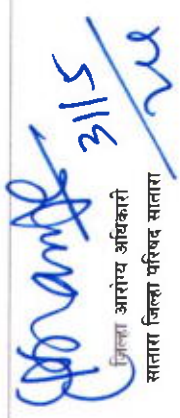 31/5
जिल्हा आरोग्य अधिकारी
सातारा जिल्हा परिषद सातारा